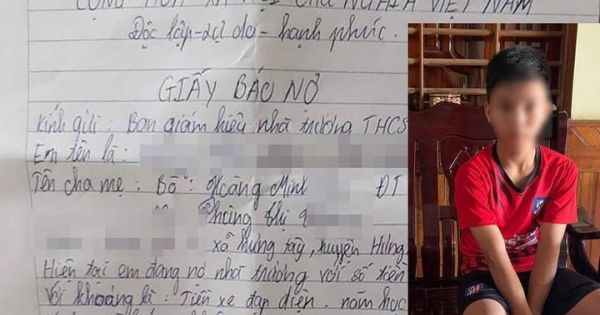 CỘNG HÒA XÃ HỘI CHỦ NGHĨA VIỆT NAM
Độc lập - tự do - hạnh phúc.
GIẤY BÁO NỢ
Kính gửi : Ban giám hiệu nhà trường THCS
Em tên là :
Tên cha mẹ : Bố : Hoàng Minh ĐT
Phùng Thị
xã Hưng Tây, huyện Hưng
Hiện tại em đang nợ nhà trường với số tiền
Với khoảng là : Tiền xe đạp điện . năm học